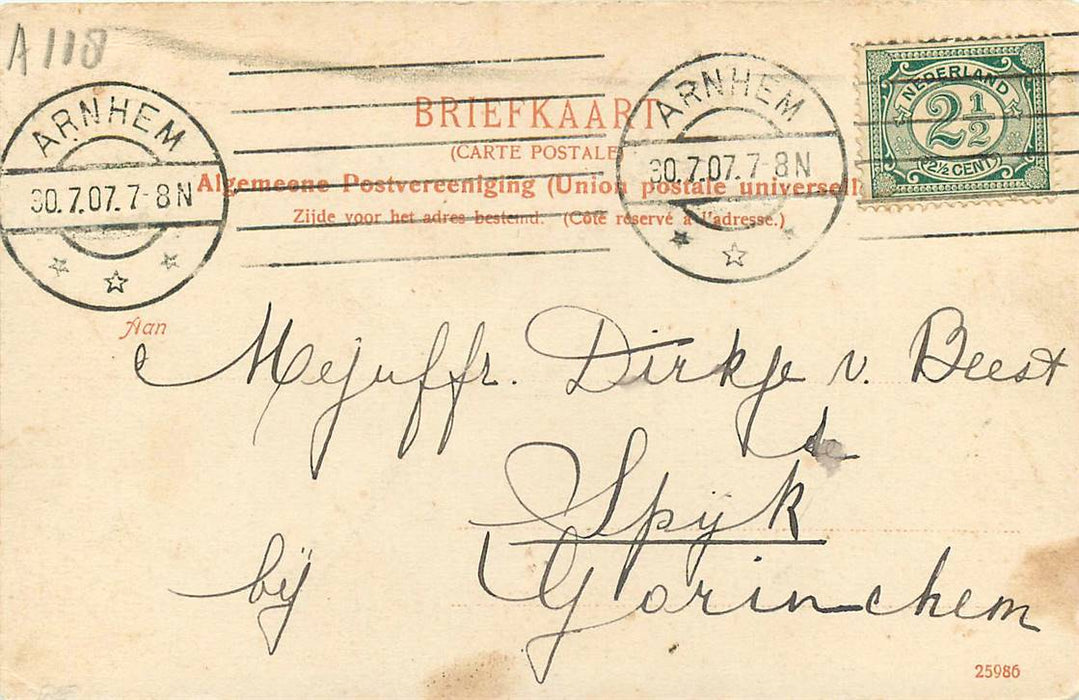 A 118
ARNHEM
30.7.07.7-8N
ARNHEM
30.7.07.7-8N
NEDERLAND
2½
(2½ CENT)
BRIEFKAART
(CARTE POSTALE
Algemeene Postvereeniging (Union postale universell
Zijde voor het adres bestemd. (Côté réservé à l'adresse.)
Aan
Mejuffr. Dirkje v. Beest
de
Spijk
bij Gorinchem
25986